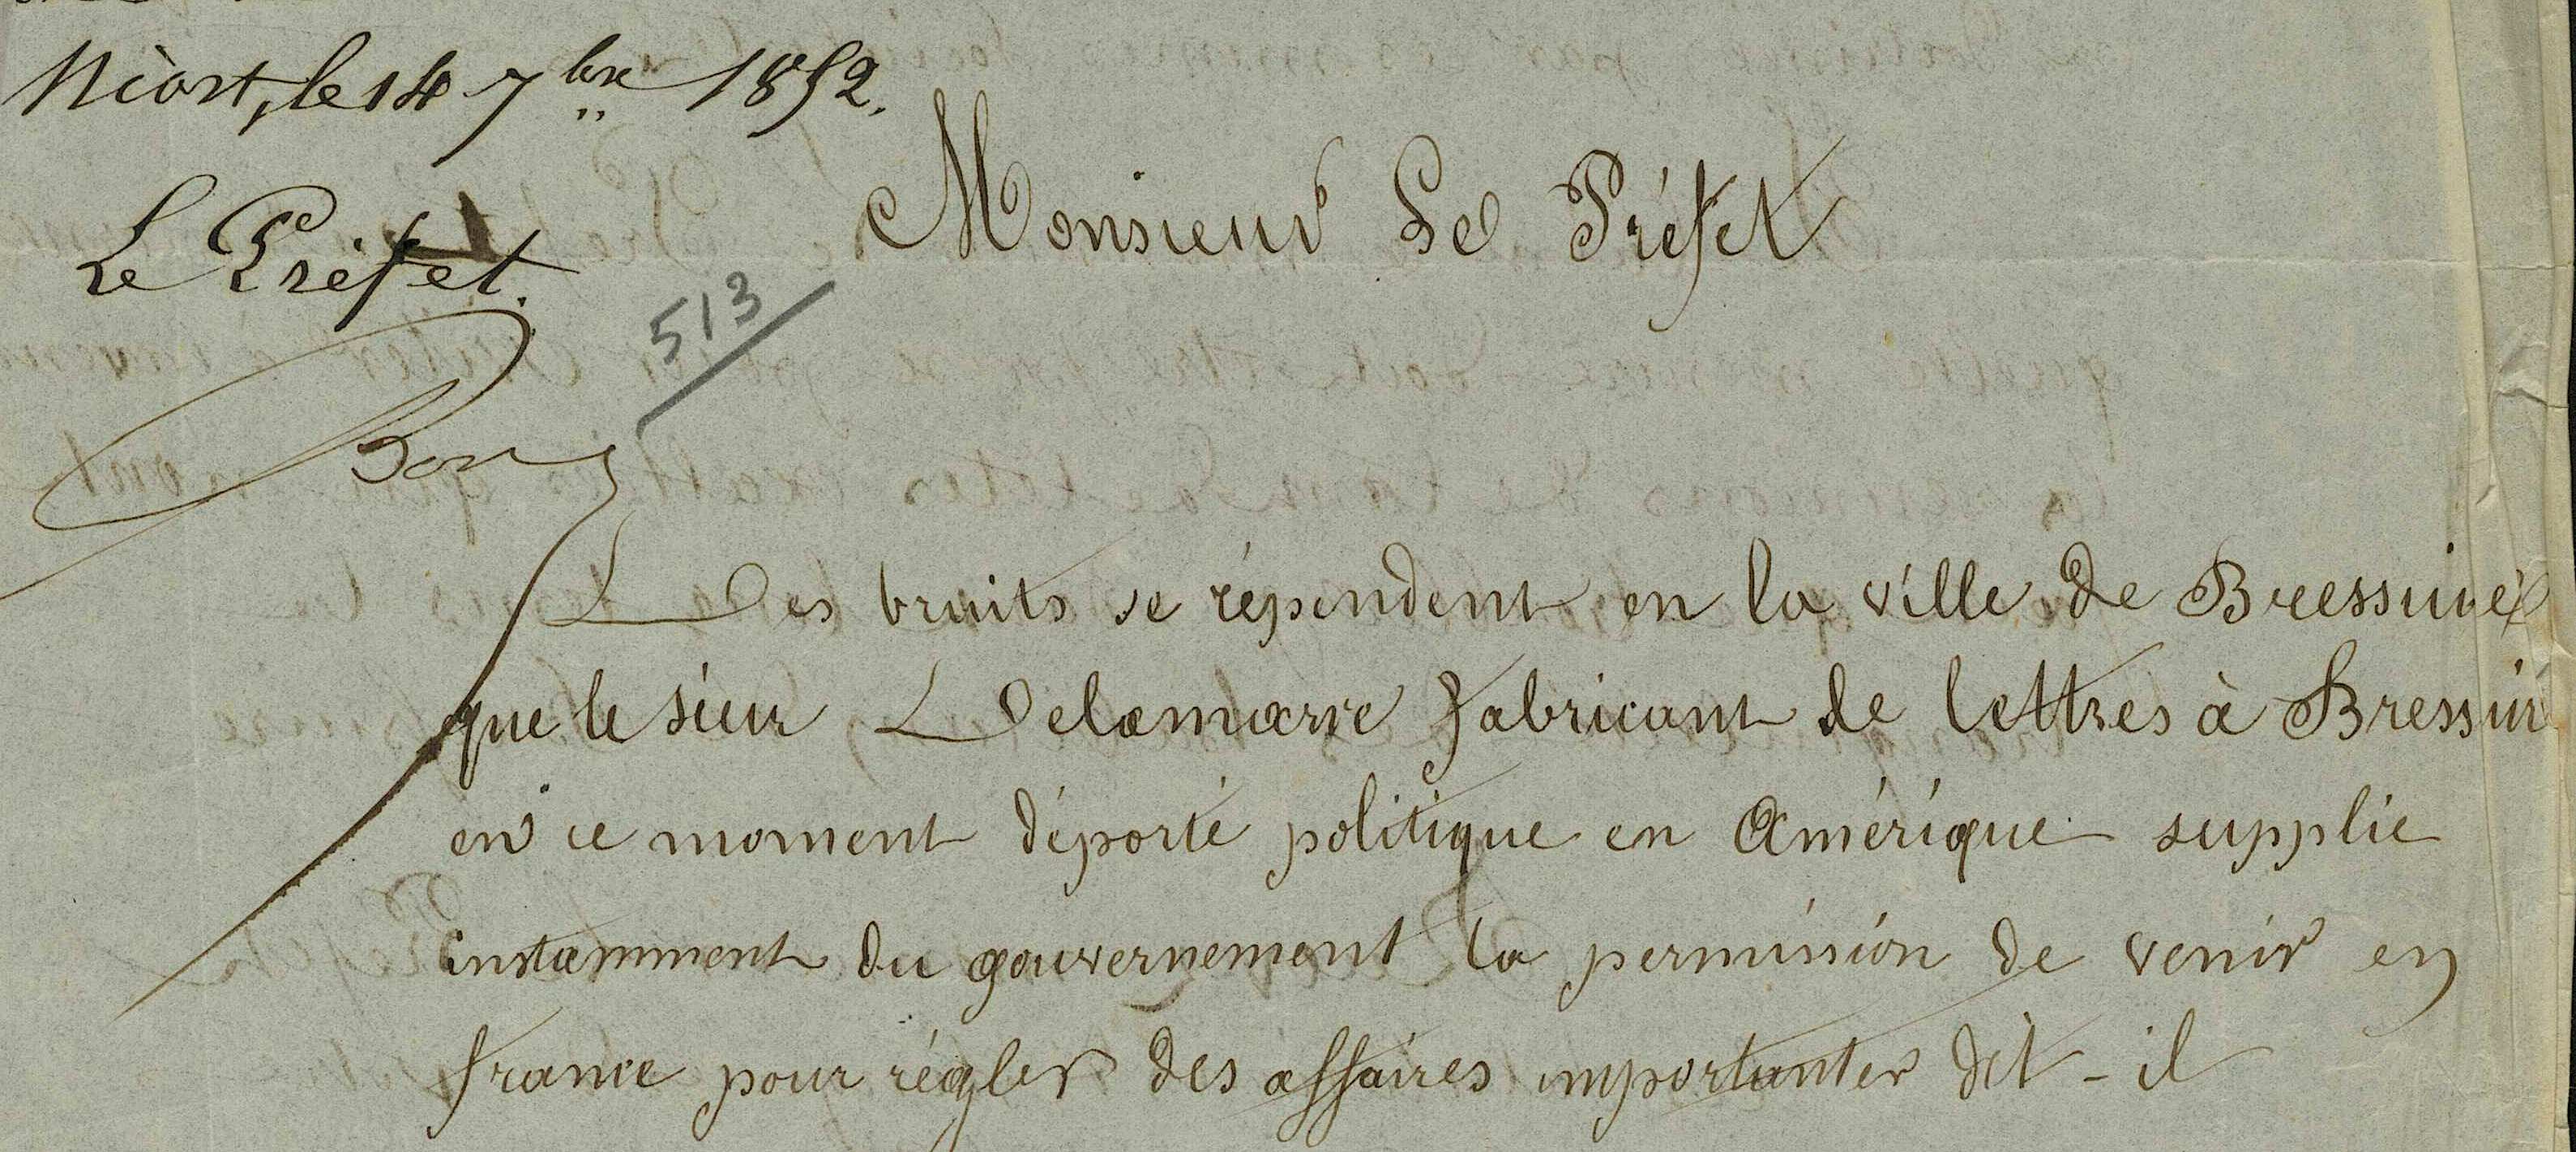 Niort, le 14 7bre 1852.
Le Préfet.
513
Monsieur Le Préfet
Des bruits se répendent en la ville de Bressuire
que le sieur Delamarre fabricant de lettres à Bressuir
en ce moment déporté politique en Amérique supplie
instamment du gouvernement la permission de venir en
france pour régler des affaires importantes dit-il